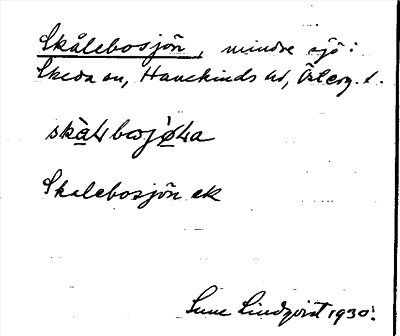 Skålebosjön, mindre sjö i
Skeda sn, Hanekinds hd, Österg. l.
Skalebosjön ek
Sune Lindqvist 1930.